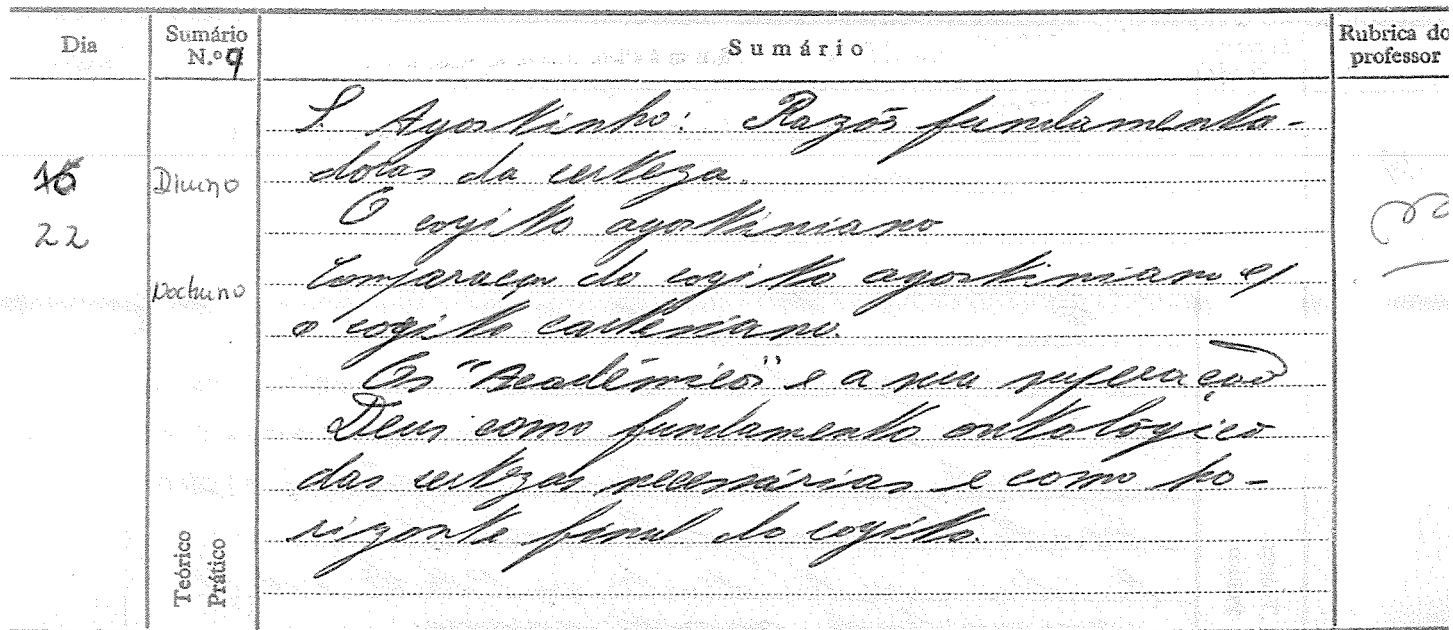 Dia
Sumário N.º 9
Sumário
Rubrica do professor
16
22
Diurno
Nocturno
Teórico
Prático
S. Agostinho: Razões fundamenta-
doras da certeza.
O cogito agostiniano
Comparação do cogito agostiniano c/
o cogito cartesiano.
Os "Académicos" e a sua superação
Deus como fundamento ontológico
das certezas necessárias e como ho-
rizonte final do cogito.